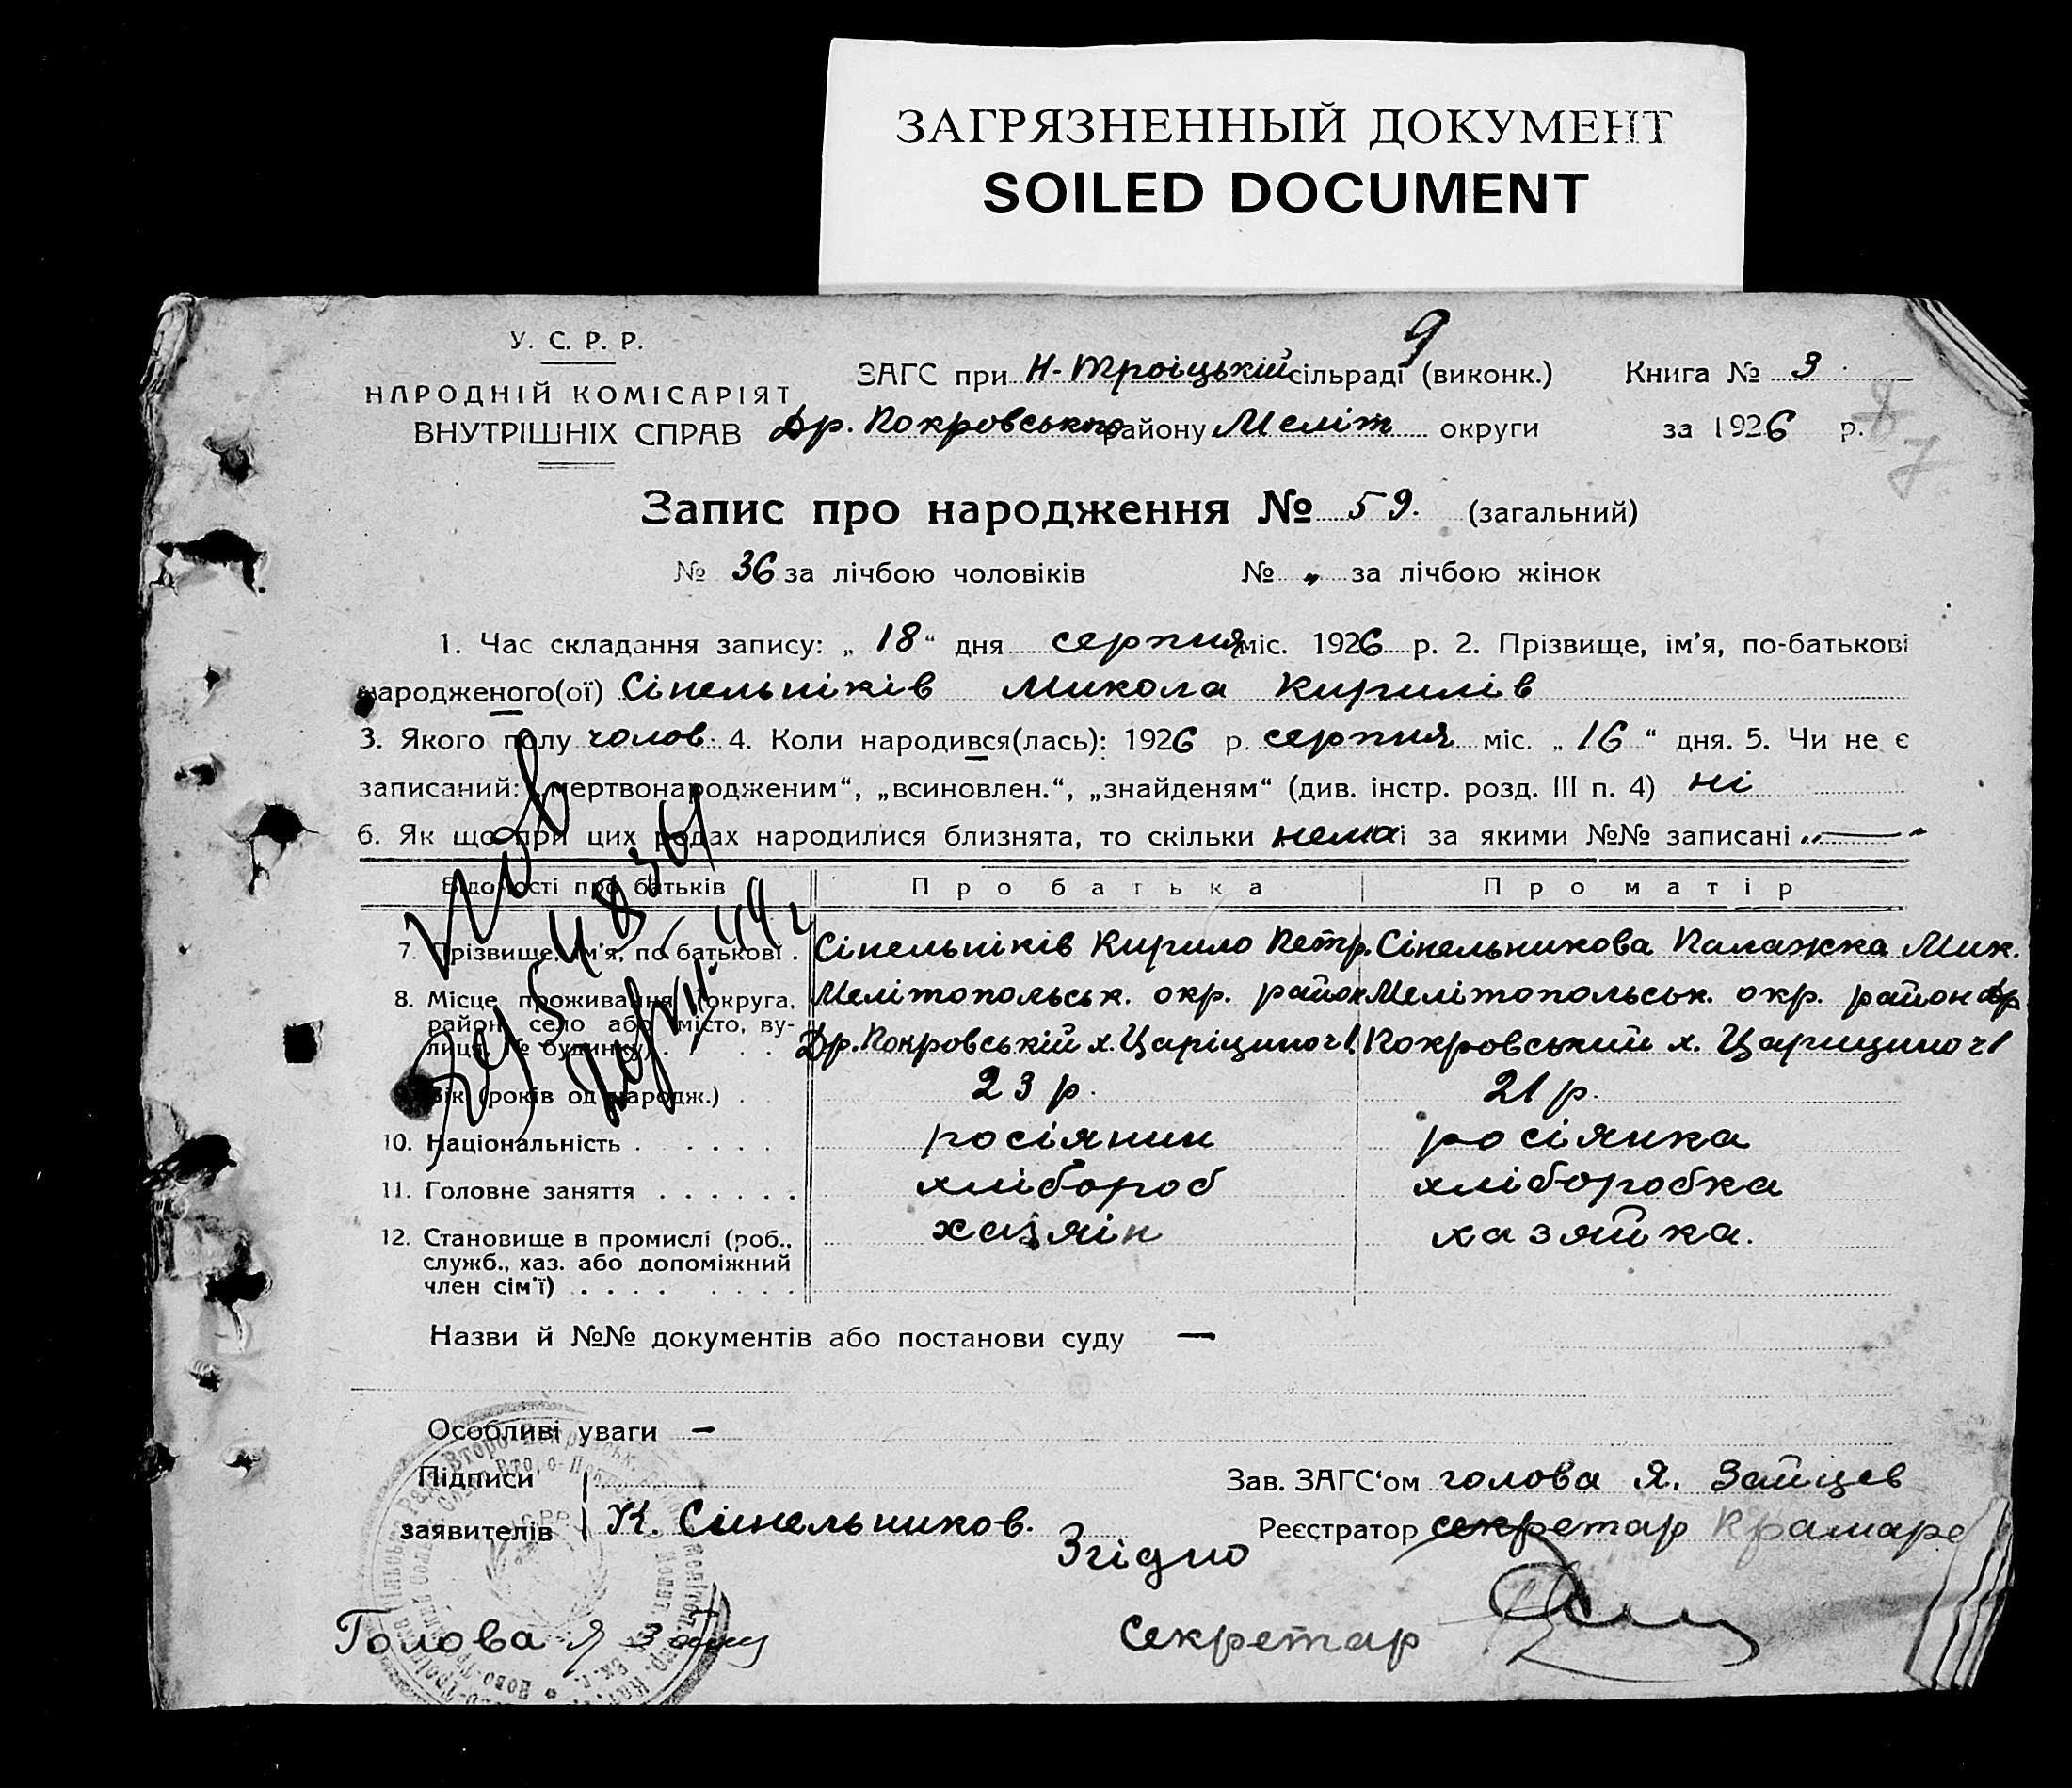 ЗАГРЯЗНЕННЫЙ ДОКУМЕНТ
SOILED DOCUMENT
9
У. С. Р. Р.
НАРОДНІЙ КОМІСАРІЯТ
ВНУТРІШНІХ СПРАВ
ЗАГС при Н-Троіцькій сільраді (виконк.) Книга № 3
Др. Покровського району Меліт округи за 1926 р.
Запис про народження № 59. (загальний)
№ 36 за лічбою чоловіків № „ за лічбою жінок
1. Час складання запису: „ 18 “ дня серпня міс. 1926 р. 2. Прізвище, ім’я, по-батькові
народженого(ої) Сінельніків Микола Кирилів
3. Якого полу чолов. 4. Коли народився(лась): 1926 р. серпня міс. „ 16 “ дня. 5. Чи не є
записаний: „мертвонародженим“, „всиновлен.“, „знайденям“ (див. інстр. розд. III п. 4) ні
6. Як що при цих родах народилися близнята, то скільки нема і за якими №№ записані „ — “
Відомості про батьків Про батька Про матір
7. Прізвище, ім’я, по батькові . Сінельніків Кирило Петр. Сінельникова Палажка Мик.
8. Місце проживання (округа, Мелітопольськ. окр. район Мелітопольськ. окр. район Др
район, село або місто, ву-
лиця, № будинку) . . . Др. Покровській х. Царіцино ч1. Покровський х. Царицино ч1
9. Вік (років од народж.) . 23 р. 21 р.
10. Національність . . . . . . росіянин росіянка
11. Головне заняття . . . . . . хлібороб хліборобка
12. Становище в промислі (роб., хазяін хазяйка.
служб., хаз. або допоміжний
член сім’ї) . . . . . . . .
Назви й №№ документів або постанови суду —
Особливі уваги —
Підписи Зав. ЗАГС‘ом голова Я. Зайцев
заявителів К. Синельников. Реєстратор секретар Крамаре
Згідно
Голова Я Зайц Секретар